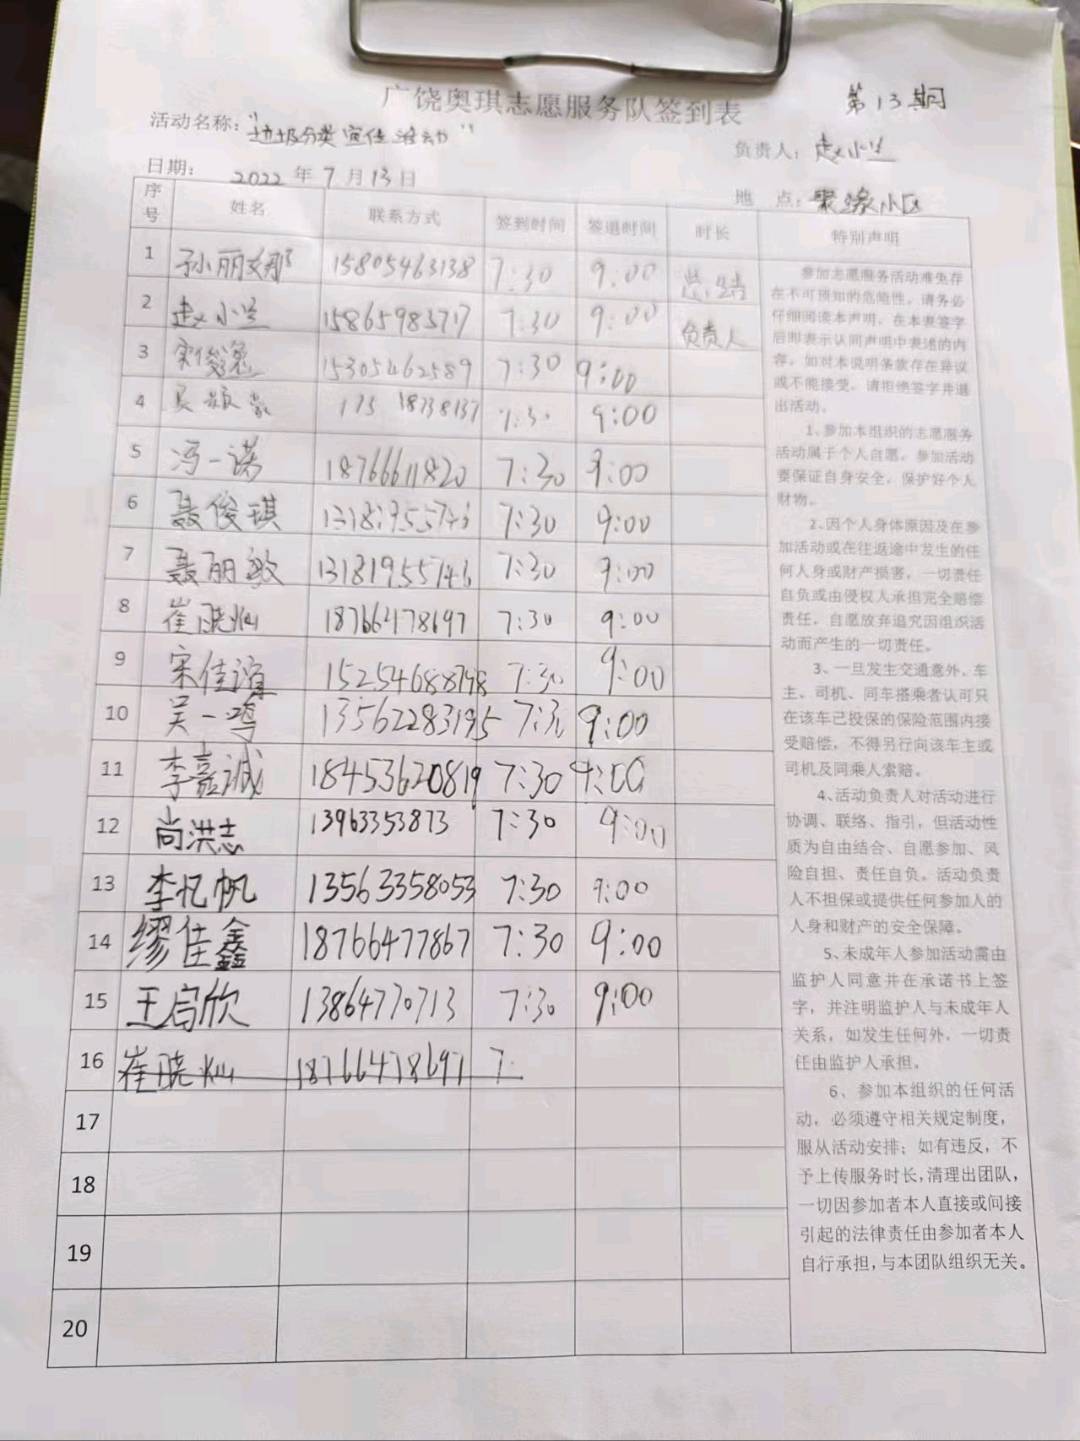 第13期
广饶奥琪志愿服务队签到表
活动名称："垃圾分类宣传活动"
负责人：赵小兰
日期： 2022 年 7 月 13 日
地 点：聚缘小区
序号 姓名 联系方式 签到时间 签退时间 时长 特别声明
1 孙丽娜 15805463138 7:30 9:00
2 赵小兰 15865983717 7:30 9:00 负责人
3 宋俊逸 15305462589 7:30 9:00
4 18738137 7:30 9:00
5 冯一诺 18766611820 7:30 9:00
6 聂俊琪 13181955746 7:30 9:00
7 聂丽敏 13181955746 7:30 9:00
8 崔晓灿 18766478697 7:30 9:00
9 宋佳谊 15254688798 7:30 9:00
10 吴一鸣 13562283195 7:30 9:00
11 李嘉诚 18453620819 7:30 9:00
12 尚洪志 13963353873 7:30 9:00
13 李忆帆 13563358053 7:30 9:00
14 缪佳鑫 18766477867 7:30 9:00
15 王启欣 13864770713 7:30 9:00
16 崔晓灿 18766478697 7:
17
18
19
20
参加志愿服务活动难免存
在不可预知的危险性，请务必
仔细阅读本声明，在本表签字
后即表示认同声明中表述的内
容，如对本说明条款存在异议
或不能接受，请拒绝签字并退
出活动。
1、参加本组织的志愿服务
活动属于个人自愿，参加活动
要保证自身安全，保护好个人
财物。
2、因个人身体原因及在参
加活动或在往返途中发生的任
何人身或财产损害，一切责任
自负或由侵权人承担完全赔偿
责任，自愿放弃追究因组织活
动而产生的一切责任。
3、一旦发生交通意外，车
主、司机、同车搭乘者认可只
在该车已投保的保险范围内接
受赔偿，不得另行向该车主或
司机及同乘人索赔。
4、活动负责人对活动进行
协调、联络、指引，但活动性
质为自由结合、自愿参加、风
险自担、责任自负。活动负责
人不担保或提供任何参加人的
人身和财产的安全保障。
5、未成年人参加活动需由
监护人同意并在承诺书上签
字，并注明监护人与未成年人
关系，如发生任何外，一切责
任由监护人承担。
6、参加本组织的任何活
动，必须遵守相关规定制度，
服从活动安排；如有违反，不
予上传服务时长，清理出团队，
一切因参加者本人直接或间接
引起的法律责任由参加者本人
自行承担，与本团队组织无关。